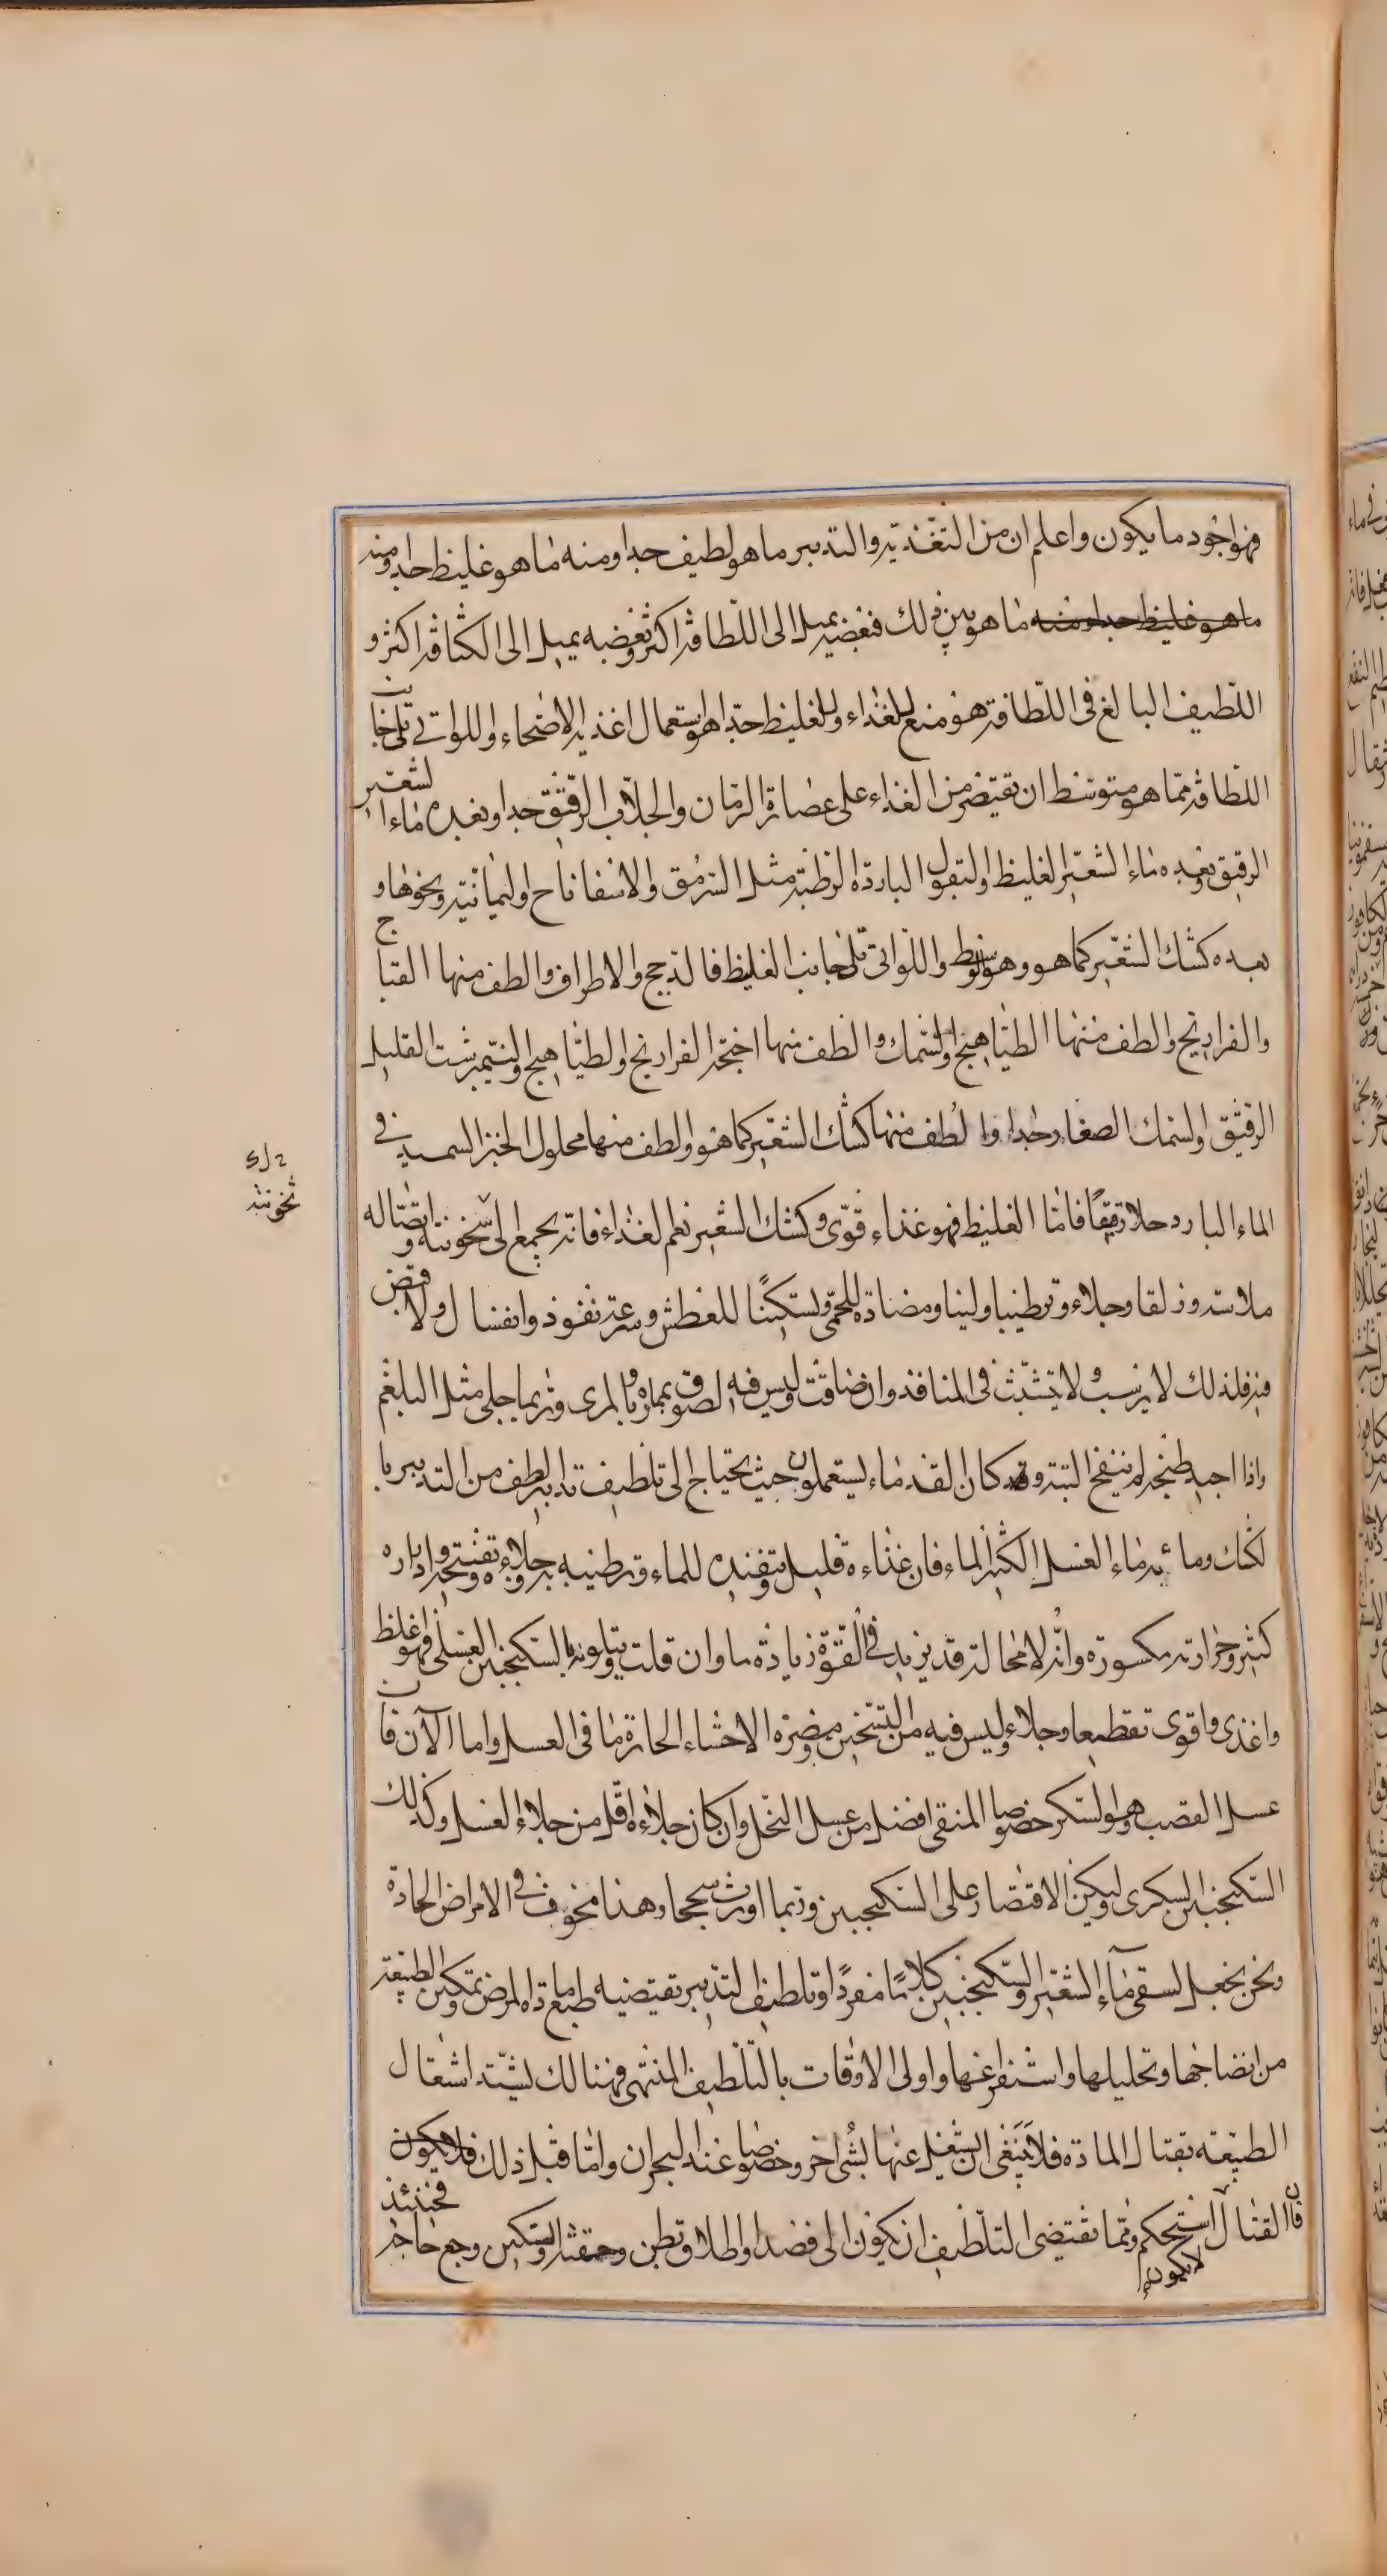 فهو اجود ما يكون واعلم ان من التغذية والتدبير ما هو لطيف جدا ومنه ما هو غليظ جدا ومنه
ما هو غليظ جدا ومنه ما هو بين ذلك فبعضه يميل الى اللطافة اكثر وبعضه يميل الى الكثافة اكثر و
اللطيف البالغ فى اللطافة هو منع للغذاء والغليظ جدا هو استعمال اغذية الاصحاء واللواتى تلى جانب
اللطافة مما هو متوسط ان يقتصر من الغذاء على عصارة الرمان والجلاب الرقيق جدا وبعده ماء الشعير
الرقيق وبعده ماء الشعير الغليظ والبقول الباردة الرطبة مثل السرمق والاسفاناخ واليمانية ونحوها و
بعده كشك الشعير كما هو وهو وسط واللواتى تلى جانب الغليظ فالدجج والاطراف والطف منها القباج
والفراريج والطف منها الطياهيج والسمك والطف منها اجنحة الفراريج والطياهيج والنيمبرشت القليل
الرقيق والسمك الصغار جدا والطف منها كشك الشعير كما هو والطف منها محلول الخبز السميد فى
الماء البارد حلا رقيقا فاما الغليظ فهو غذاء قوى وكشك الشعير نعم الغذاء فانه يجمع الى سخونته واتصاله
2 ل ك
ثخونته
ملاسة وزلقا وجلاء وترطيبا ولينا ومضادة للحمى وتسكينا للعطش وسرعة نفوذ وانغسال ولا قبض
فيه فلذلك لا يرسب ولا يتشبث فى المنافذ وان ضاقت وليس فيه لصوق بما مر به والمرى وربما جلى مثل البلغم
واذا اجيد طبخه لم ينفخ البتة وقد كان القدماء يستعملون حيث يحتاج الى تلطيف تدابير الطف من التدبير با
لكشك وما ئه ماء العسل الكثير الماء فان غذاءه قليل وتنفيذه للماء وترطيبه به وجلاءه وتفتيحه وادراره
كثير وحرارته مكسورة وانه لا محالة قد يزيد فى القوة زيادة ما وان قلت ويتلونه بالسكنجبين العسلى فهو اغلظ
واغذى واقوى تقطيعا وجلاء وليس فيه من التسخين ومضرة الاحشاء الحارة ما فى العسل واما الآن فان
عسل القصب وهو السكر خصوصا المنقى افضل من عسل النحل وان كان جلاءه اقل من جلاء العسل وكذلك
السكنجبين السكرى وليكن الاقتصار على السكنجبين وربما اورث سحجا وهذا مخوف فى الامراض الحادة
ونحن نجعل لسقى ماء الشعير والسكنجبين كلاما مفردا وتلطيف التدبير تقتضيه طباع مادة المرض وتمكين الطبيعة
من انضاجها وتحليلها واستفراغها واولى الاوقات بالتلطيف المنتهى فهنالك يشتد اشتغال
الطبيعة بقتال المادة فلا ينبغى ان تشغل عنها بشئ اخر وخصوصا عند البحران واما قبل ذلك فلا يكون
فان القتال لا يكون استحكم ومما تقتضى التلطيف ان يكون الى فصد او اطلاق بطن وحقنة او تسكين وجع حاجة فحينئذ